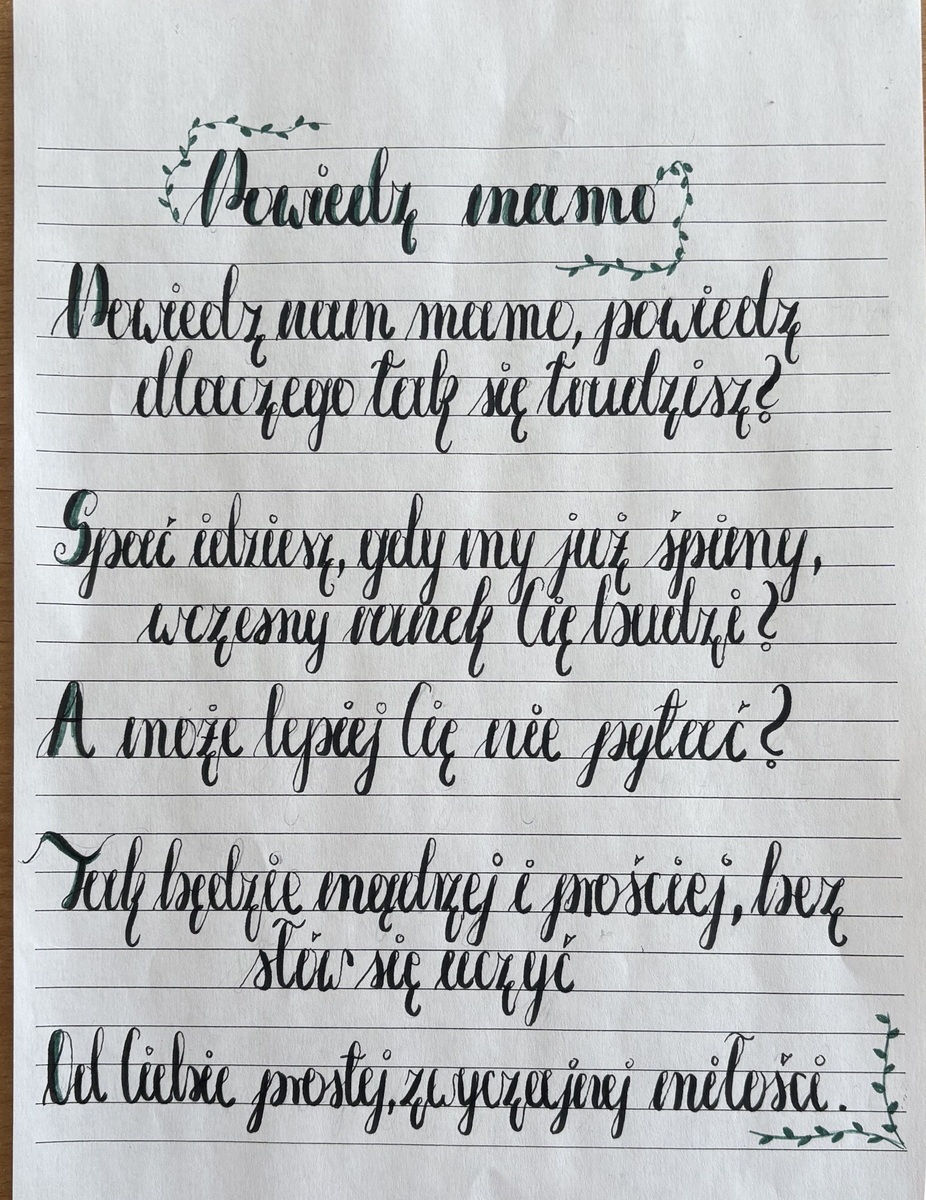 Powiedz mamo
Powiedz nam mamo, powiedz
dlaczego tak się trudzisz?
Spać idziesz, gdy my już śpimy,
wczesny ranek Cię budzi?
A może lepiej Cię nie pytać?
Tak będzie mądrzej i prościej, bez
słów się uczyć
Od Ciebie prostej, zwyczajnej miłości.